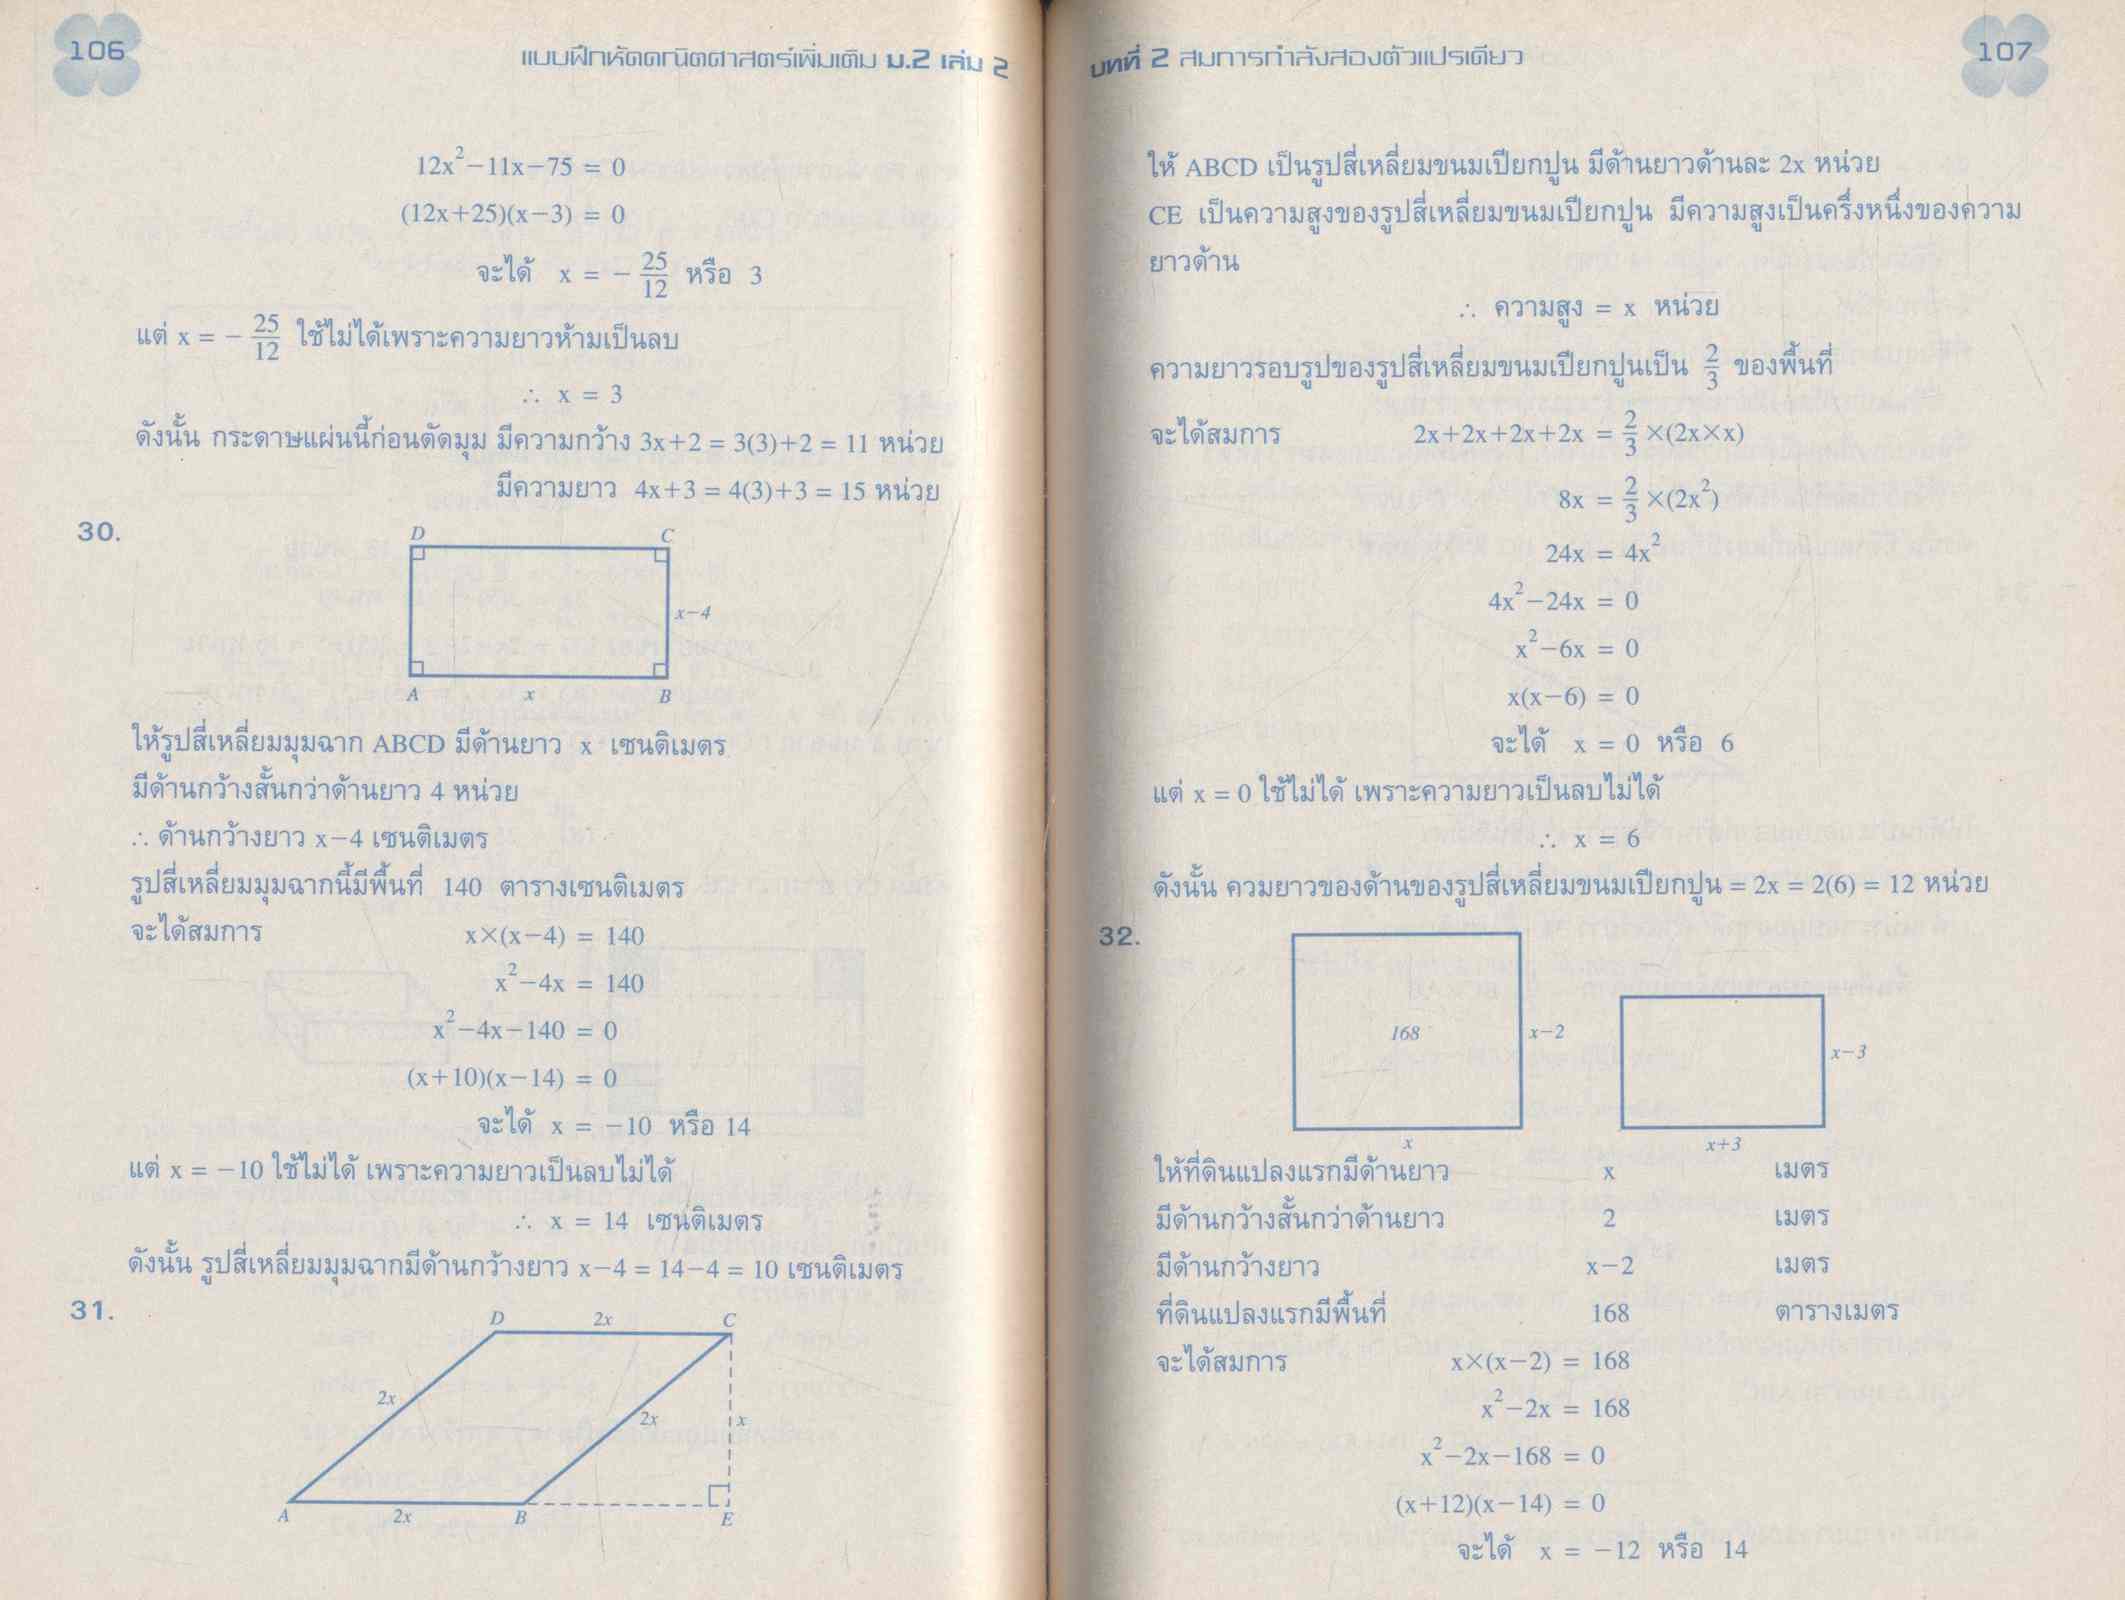 106
แบบฝึกหัดคณิตศาสตร์เพิ่มเติม ม.2 เล่ม 2
12x²−11x−75 = 0
(12x+25)(x−3) = 0
จะได้ x = − 25/12 หรือ 3
แต่ x = − 25/12 ใช้ไม่ได้เพราะความยาวห้ามเป็นลบ
∴ x = 3
ดังนั้น กระดาษแผ่นนี้ก่อนตัดมุม มีความกว้าง 3x+2 = 3(3)+2 = 11 หน่วย
มีความยาว 4x+3 = 4(3)+3 = 15 หน่วย
30.
D C
x−4
A x B
ให้รูปสี่เหลี่ยมมุมฉาก ABCD มีด้านยาว x เซนติเมตร
มีด้านกว้างสั้นกว่าด้านยาว 4 หน่วย
∴ ด้านกว้างยาว x−4 เซนติเมตร
รูปสี่เหลี่ยมมุมฉากนี้มีพื้นที่ 140 ตารางเซนติเมตร
จะได้สมการ x×(x−4) = 140
x²−4x = 140
x²−4x−140 = 0
(x+10)(x−14) = 0
จะได้ x = −10 หรือ 14
แต่ x = −10 ใช้ไม่ได้ เพราะความยาวเป็นลบไม่ได้
∴ x = 14 เซนติเมตร
ดังนั้น รูปสี่เหลี่ยมมุมฉากมีด้านกว้างยาว x−4 = 14−4 = 10 เซนติเมตร
31.
D 2x C
2x 2x x
A 2x B E
บทที่ 2 สมการกำลังสองตัวแปรเดียว
107
ให้ ABCD เป็นรูปสี่เหลี่ยมขนมเปียกปูน มีด้านยาวด้านละ 2x หน่วย
CE เป็นความสูงของรูปสี่เหลี่ยมขนมเปียกปูน มีความสูงเป็นครึ่งหนึ่งของความ
ยาวด้าน
∴ ความสูง = x หน่วย
ความยาวรอบรูปของรูปสี่เหลี่ยมขนมเปียกปูนเป็น 2/3 ของพื้นที่
จะได้สมการ 2x+2x+2x+2x = 2/3 ×(2x×x)
8x = 2/3 ×(2x²)
24x = 4x²
4x²−24x = 0
x²−6x = 0
x(x−6) = 0
จะได้ x = 0 หรือ 6
แต่ x = 0 ใช้ไม่ได้ เพราะความยาวเป็นลบไม่ได้
∴ x = 6
ดังนั้น ควมยาวของด้านของรูปสี่เหลี่ยมขนมเปียกปูน = 2x = 2(6) = 12 หน่วย
32.
168 x−2 x−3
x x+3
ให้ที่ดินแปลงแรกมีด้านยาว x เมตร
มีด้านกว้างสั้นกว่าด้านยาว 2 เมตร
มีด้านกว้างยาว x−2 เมตร
ที่ดินแปลงแรกมีพื้นที่ 168 ตารางเมตร
จะได้สมการ x×(x−2) = 168
x²−2x = 168
x²−2x−168 = 0
(x+12)(x−14) = 0
จะได้ x = −12 หรือ 14